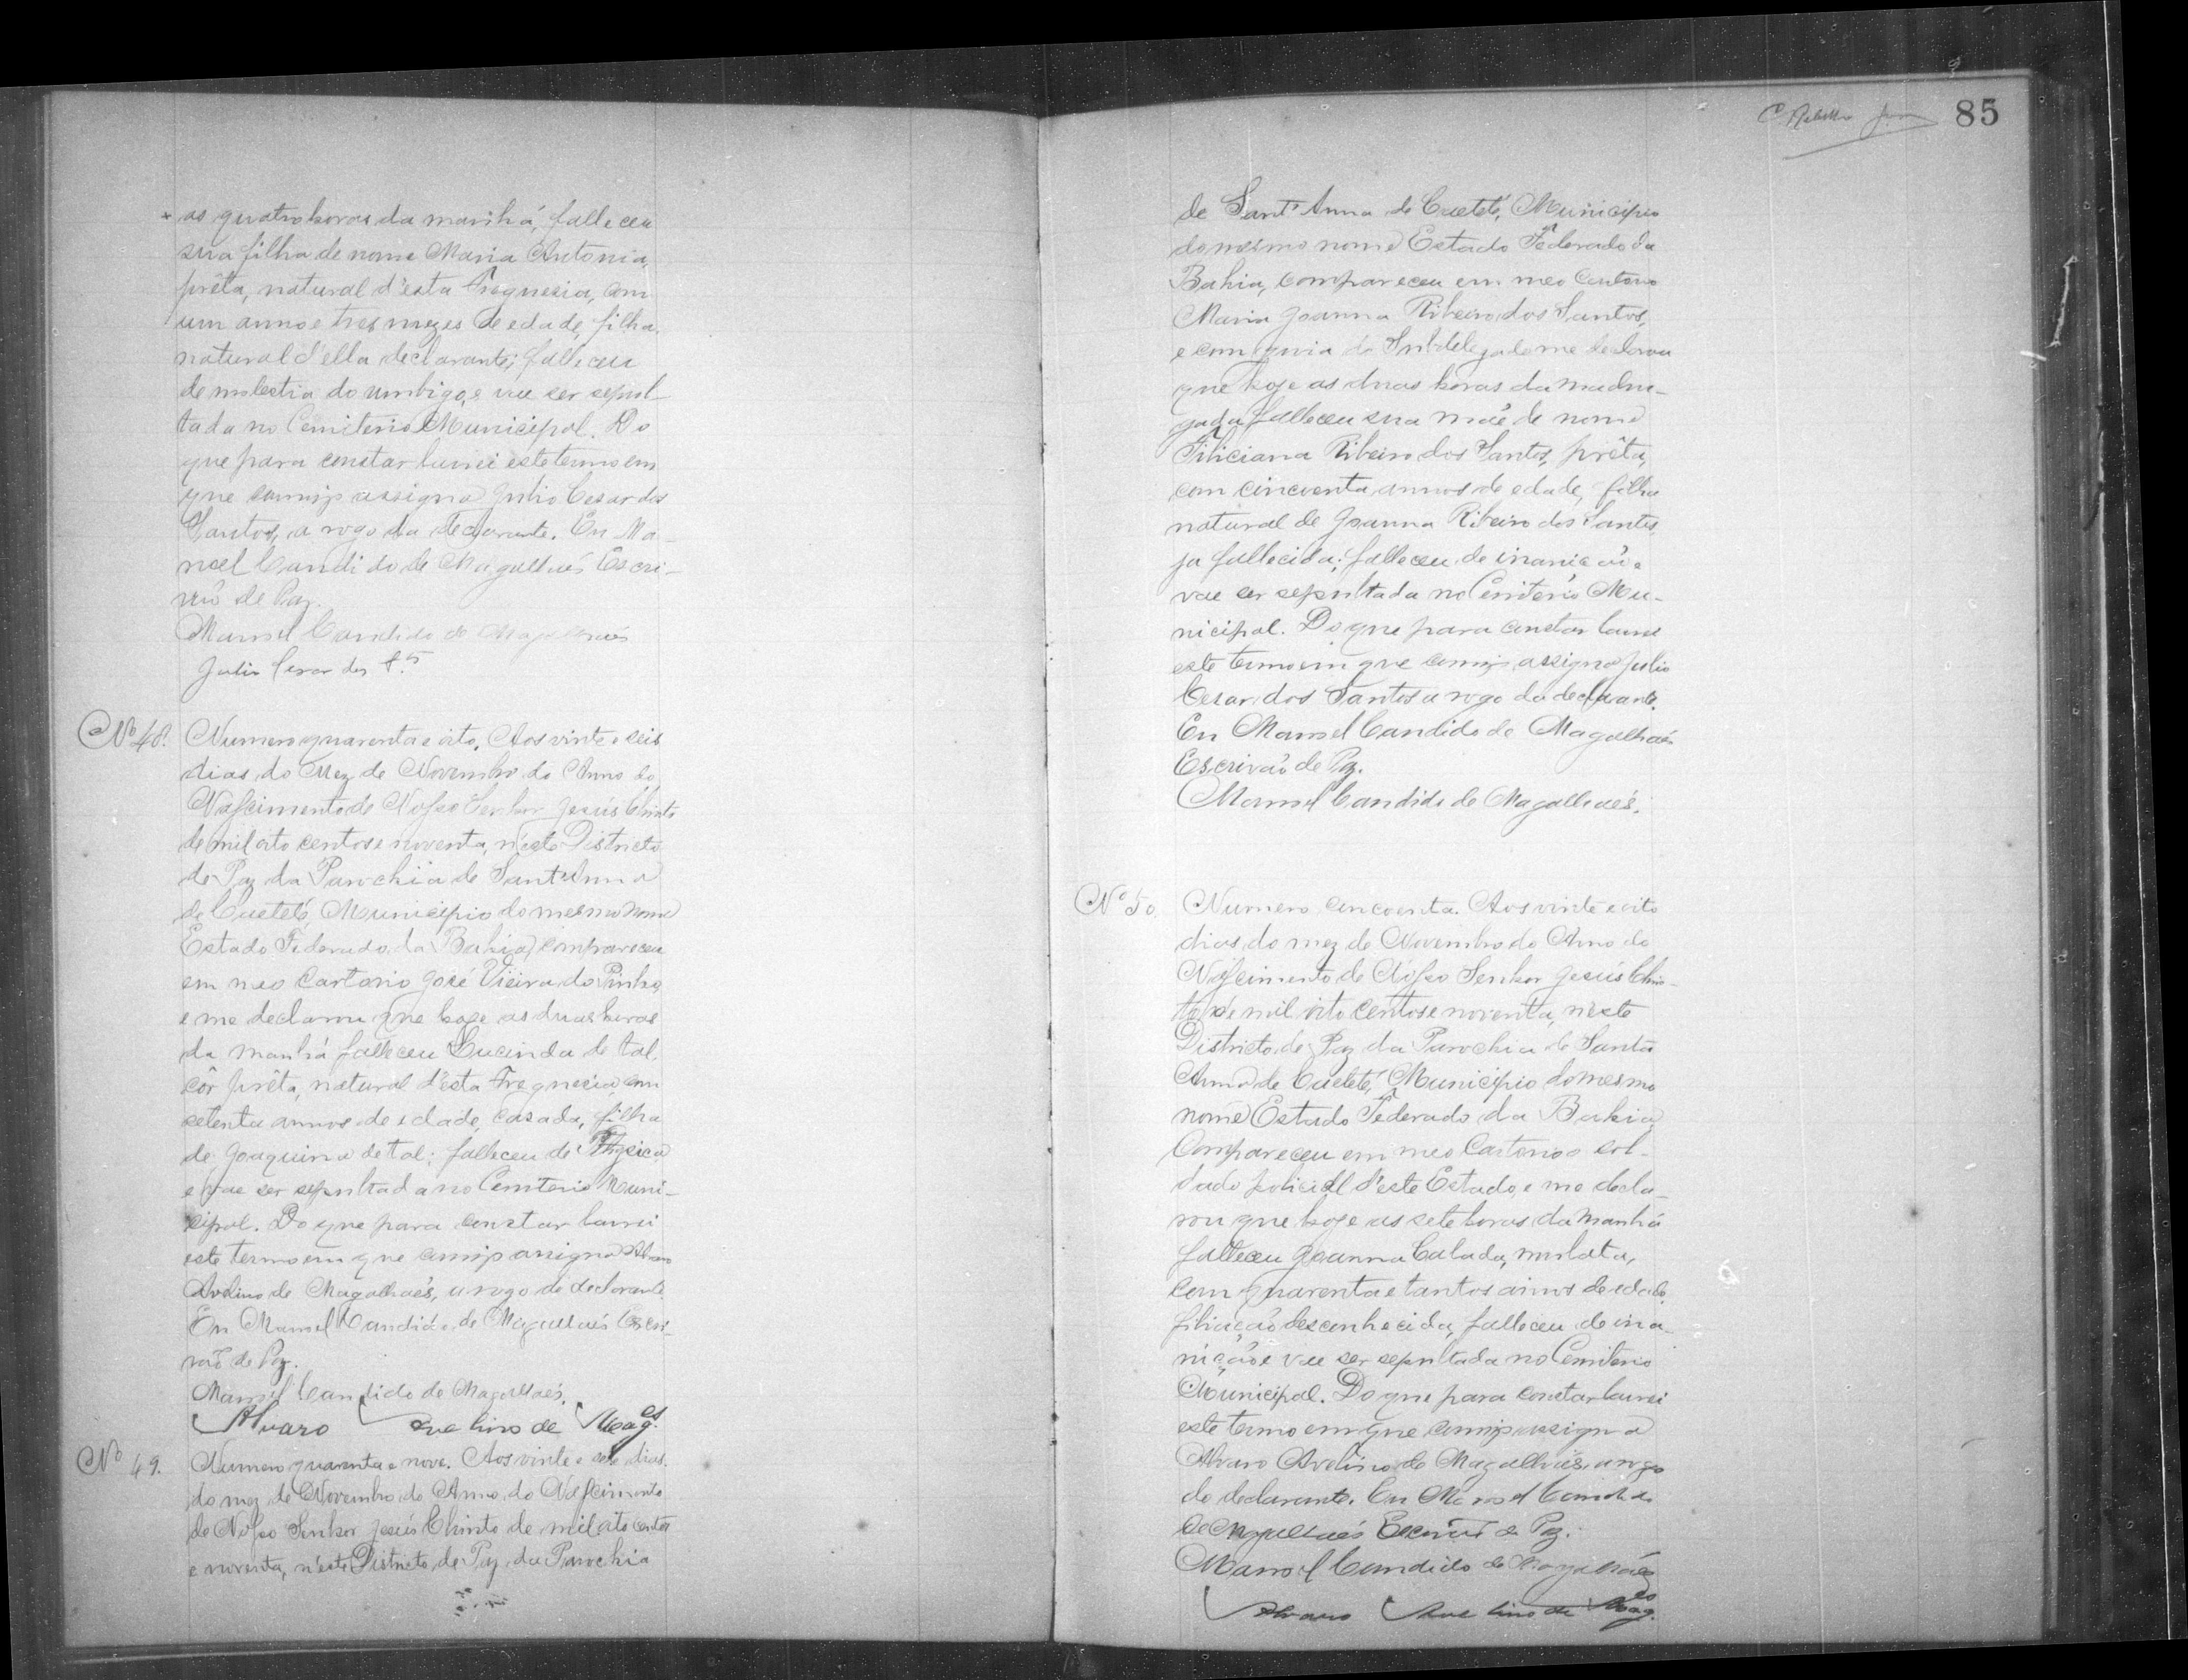 as quatro horas da manhã, falleceu
sua filha de nome Maria Antonia,
prêta, natural d'esta Freguesia, com
um anno e tres mezes de edade, filha
natural d'ella declarante; falleceu
de molestia do umbigo, e vae ser sepul-
tada no Cemiterio Municipal. Do
que para constar lavrei este termo em
que comigo assigna Julio Cesar dos
Santos, a rogo da declarante. Eu Ma-
noel Candido de Magalhaês Escri-
vaõ de Paz.
Manoel Candido de Magalhaês
Julio Cesar dos S.os
Nº 48. Numero quarenta e oito. Aos vinte e seis
dias do Mez de Novembro do Anno do
Nascimento de Nosso Senhor Jesús Christo
de mil oito centos e noventa, n'este Districto
de Paz da Parochia de Sant'Anna
de Caeteté, Municipio do mesmo nome
Estado Federado da Bahia, compareceu
em meo Cartorio José Vieira do Pinho
e me declarou que hoje as duas horas
da manhã falleceu Lucinda de tal,
côr prêta, natural d'esta Freguesia, com
setenta annos de edade, casada, filha
de Joaquina de tal; falleceu de Thysica
e vae ser sepultada no Cemiterio Muni-
cipal. Do que para constar lavrei
este termo em que comigo assigna Alvaro
Avelino de Magalhaês, a rogo do declarante.
Eu Manoel Candido de Magalhaês Escri-
vaõ de Paz.
Manoel Candido de Magalhaês.
Alvaro Avelino de Mag.es
Nº 49. Numero quarenta e nove. Aos vinte e sete dias
do mez de Novembro do Anno do Nascimento
de Nosso Senhor Jesús Christo de mil oito centos
e noventa, n'este Districto de Paz da Parochia
85
de Sant'Anna de Caeteté, Municipio
do mesmo nome Estado Federado da
Bahia, compareceu em meo Cartorio
Maria Joanna Ribeiro dos Santos,
e com guia do Subdelegado me declarou
que hoje as duas horas da madru-
gada falleceu sua mãe de nome
Filiciana Ribeiro dos Santos, prêta,
com cincoenta annos de edade, filha
natural de Joanna Ribeiro dos Santos,
ja fallecida; falleceu de inaniçaõ e
vae ser sepultada no Cemiterio Mu-
nicipal. Do que para constar lavrei
este termo em que comigo assigna Julio
Cesar dos Santos a rogo da declarante.
Eu Manoel Candido de Magalhaês
Escrivaõ de Paz.
Manoel Candido de Magalhaês.
Nº 50. Numero cincoenta. Aos vinte e oito
dias do mez de Novembro do Anno do
Nascimento de Nosso Senhor Jesús Chris-
to de mil oito centos e noventa, n'este
Districto de Paz da Parochia de Santa
Anna de Caeteté, Municipio do mesmo
nome Estado Federado da Bahia
Compareceu em meo Cartorio o sol-
dado policial d'este Estado, e me decla-
rou que hoje as sete horas da manhã
falleceu Joanna Calada, mulata,
com quarenta e tantos annos de edade,
filiaçaõ desconhecida, falleceu de ina-
niçaõ e vae ser sepultada no Cemiterio
Municipal. Do que para constar lavrei
este termo em que comigo assigna
Alvaro Avelino de Magalhaês, a rogo
do declarante. Eu Manoel Candido
de Magalhaês Escrivaõ de Paz.
Manoel Candido de Magalhaês
Alvaro Avelino de Mag.es